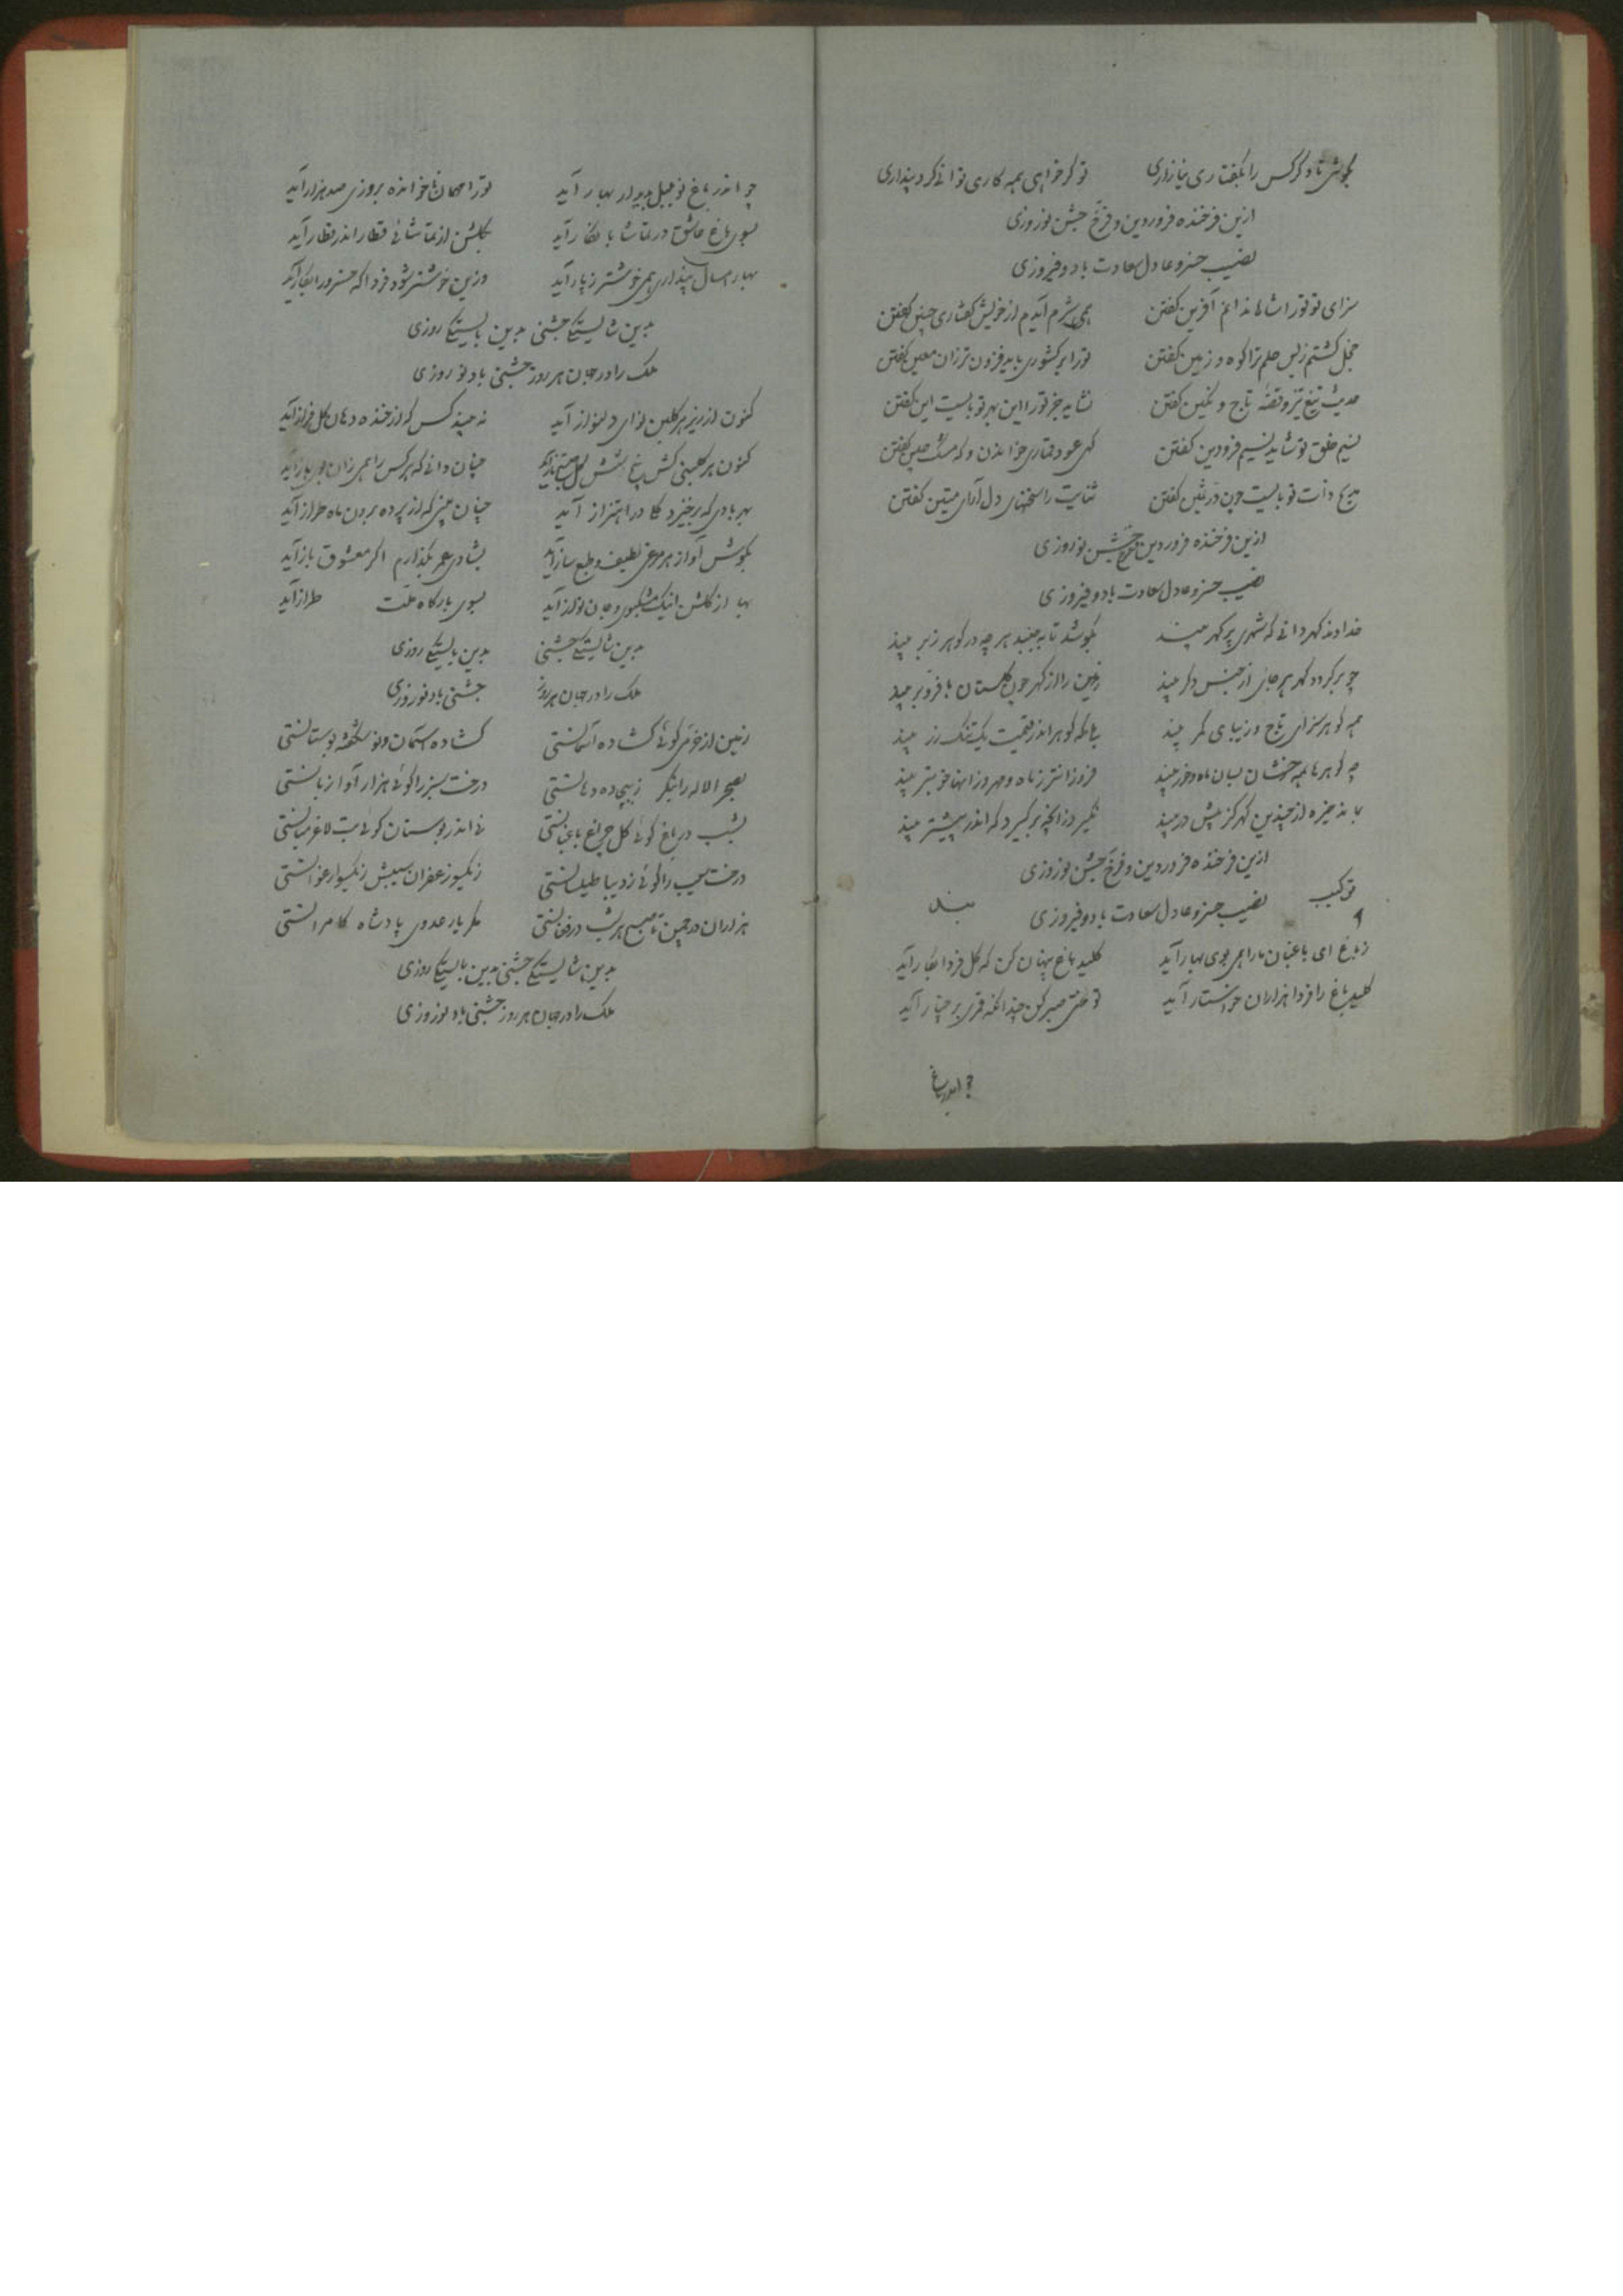 بکوشی تا دل کس را بگفتاری نیازاری تو گر خواهی بهمه کاری توانی کرد پنداری
ازین فرخنده فروردین و فرخ جشن نوروزی
نصیب خسرو عادل سعادت باد و فیروزی
سزای تو تو را شاها ندانم آفرین گفتن همی شرم آیدم از خویش گفتاری چنین گفتن
خجل گشتم ز بس حلم ترا کوه و زمین گفتن تو را بر کشوری باید فزون تر زان معین گفتن
حدیث تیغ تیز و قصهٔ تاج و نگین گفتن نشاید جز تو را این بهر تو بایست این گفتن
نسیم خلق تو شاید نسیم فرودین گفتن گهی عود قماری خواندن و گه مشک چین گفتن
مدیح ذات تو بایست چون در ثمین گفتن ثنایت را سخنهای دل آرای متین گفتن
ازین فرخنده فروردین و فرخ جشن نوروزی
نصیب خسرو عادل سعادت باد و فیروزی
خداوند گهر دانی که شهری پر گهر بیند بکوشد تا به بیند هر چه در گوهر زبر بیند
چو برگردد گهر بر جای از جنس دگر بیند زمین را از گهر چون گلستان با فر و بر بیند
همه گوهر سزای تاج و زیبای کمر بیند گوهر اندر قیمت یک تنگ زر بیند
چه گوهرها همه رخشان بسان ماه و خور بیند فروزانتر ز ماه و مهر وز اینها خوبتر بیند
بماند خیره از چندین گهر کز پیش در بیند نگیرد زانچه برگیرد که اندر پیشتر بیند
ازین فرخنده فروردین و فرخ جشن نوروزی
ترکیب نصیب خسرو عادل سعادت باد و فیروزی بند
ز باغ ای باغبان ما را همی بوی بهار آید کلید باغ پنهان کن که گل فردا بکار آید
کلید باغ را فردا هزاران خواستار آید تو لختی صبر کن چندانکه قمری بر چنار آید
چو اندر باغ
چو اندر باغ تو بلبل بدیدار بهار آید تو را مهمان ناخوانده بروزی صد هزار آید
بسوی باغ عاشق در تماشا با نگار آید بگلشن از تماشائی قطار اندر قطار آید
بهار امسال پنداری همی خوشتر ز پار آید وزین خوشتر شود فردا که خسرو را بکار آید
بدین شایستگی جشنی بدین بایستگی روزی
ملک را در جهان هر روز جشنی باد نوروزی
کنون از زیر هر گلبن نوای دلنواز آید نه بیند کس گر از خنده دهان گل فراز آید
کنون هر گلبنی کش پنج شش گل چنان دانی که هر کس را همی زان بوی باز آید
بهر بادی که برخیزد گلی در اهتزاز آید چنان بینی که از پرده برون ماه طراز آید
بگوش آواز هر مرغی لطیف و طبع ساز آید بشادی عمر بگذارم اگر معشوق باز آید
بهار از گلشن اینک بسوی بارگاه ملت طراز آید
بدین شایستگی جشنی بدین بایستگی روزی
ملک را در جهان هر روز جشنی باد نوروزی
زمین از خرمی گوئی گشاده آسمانستی گشاده آسمان و نو شگفته بوستانستی
بصحرا لاله را بنگر ز بیجاده دهانستی درخت سبز را گوئی هزار آوا زبانستی
بشب در باغ گوئی گل چراغ باغبانستی نی اندر بوستان گوئی بت لاغر میانستی
درخت سیب را گوئی ز دیبا طیلسانستی ز یکسو زعفران سیبش ز یکسو ارغوانستی
هزاران در چمن تا صبح هر شب در فغانستی مگر یار عدوی پادشاه کامرانستی
بدین شایستگی جشنی بدین بایستگی روزی
ملک را در جهان هر روز جشنی باد نوروزی